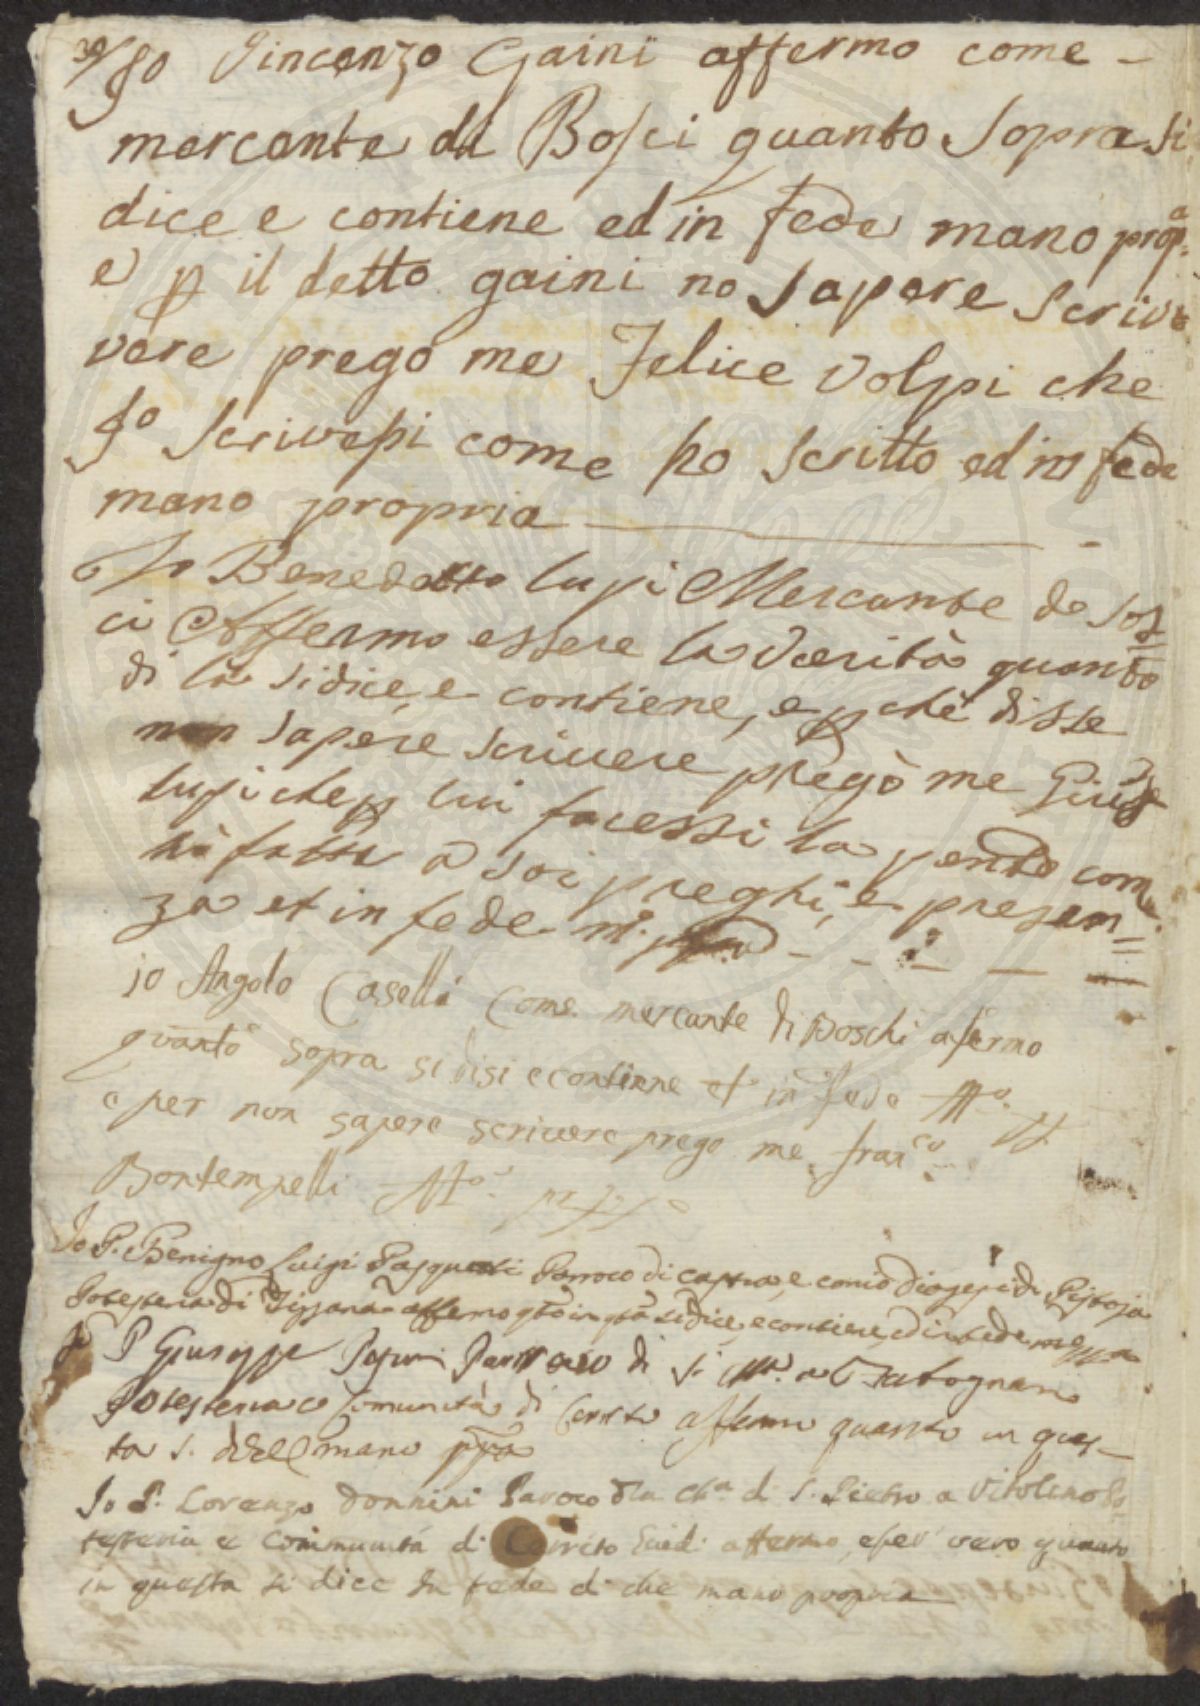 Jo Vincenzo Gaini affermo come -
mercante di Bosci quanto Sopra si
dice e contiene ed in fede mano prop.a
e p il detto gaini no sapere scrive
vere prego me Felice Volpi che
Jo Scrivessi come ho scritto ed in fede
mano propria
Jo Benedetto lupi Mercante de Bos=
ci Affermo essere la verità quanto
di là si dice, e contiene, e p chè disse
non sapere scrivere pregò me
lupi che p lui facessi la pente come
hò fatto a soi preghi, e presen=
za et in fede m.
io Angolo Caselli Come mercante di Boschi afermo
quanto sopra si disi e contiene et in fede
e per non sapere scrivere prego me Fran.co
Bontempelli
Jo P. Benigno Luigi Parroco di Castra, e comio Diogesi di Pistoja
Potesteria di Tizzana affermo qto in qta si dice, e contiene, ed in fede
Jo P Giuseppe di S.
Potesteria e Comunità di Cerreto affermo quanto in ques-
ta s. dice mano ppa
Jo P. Lorenzo Donnini Paroco dla Ch.a di S. Pietro a Vitolino Po
testeria e Communità di Cerreto Guidi affermo, esser vero quanto
in questa si dice In fede di che mano propria